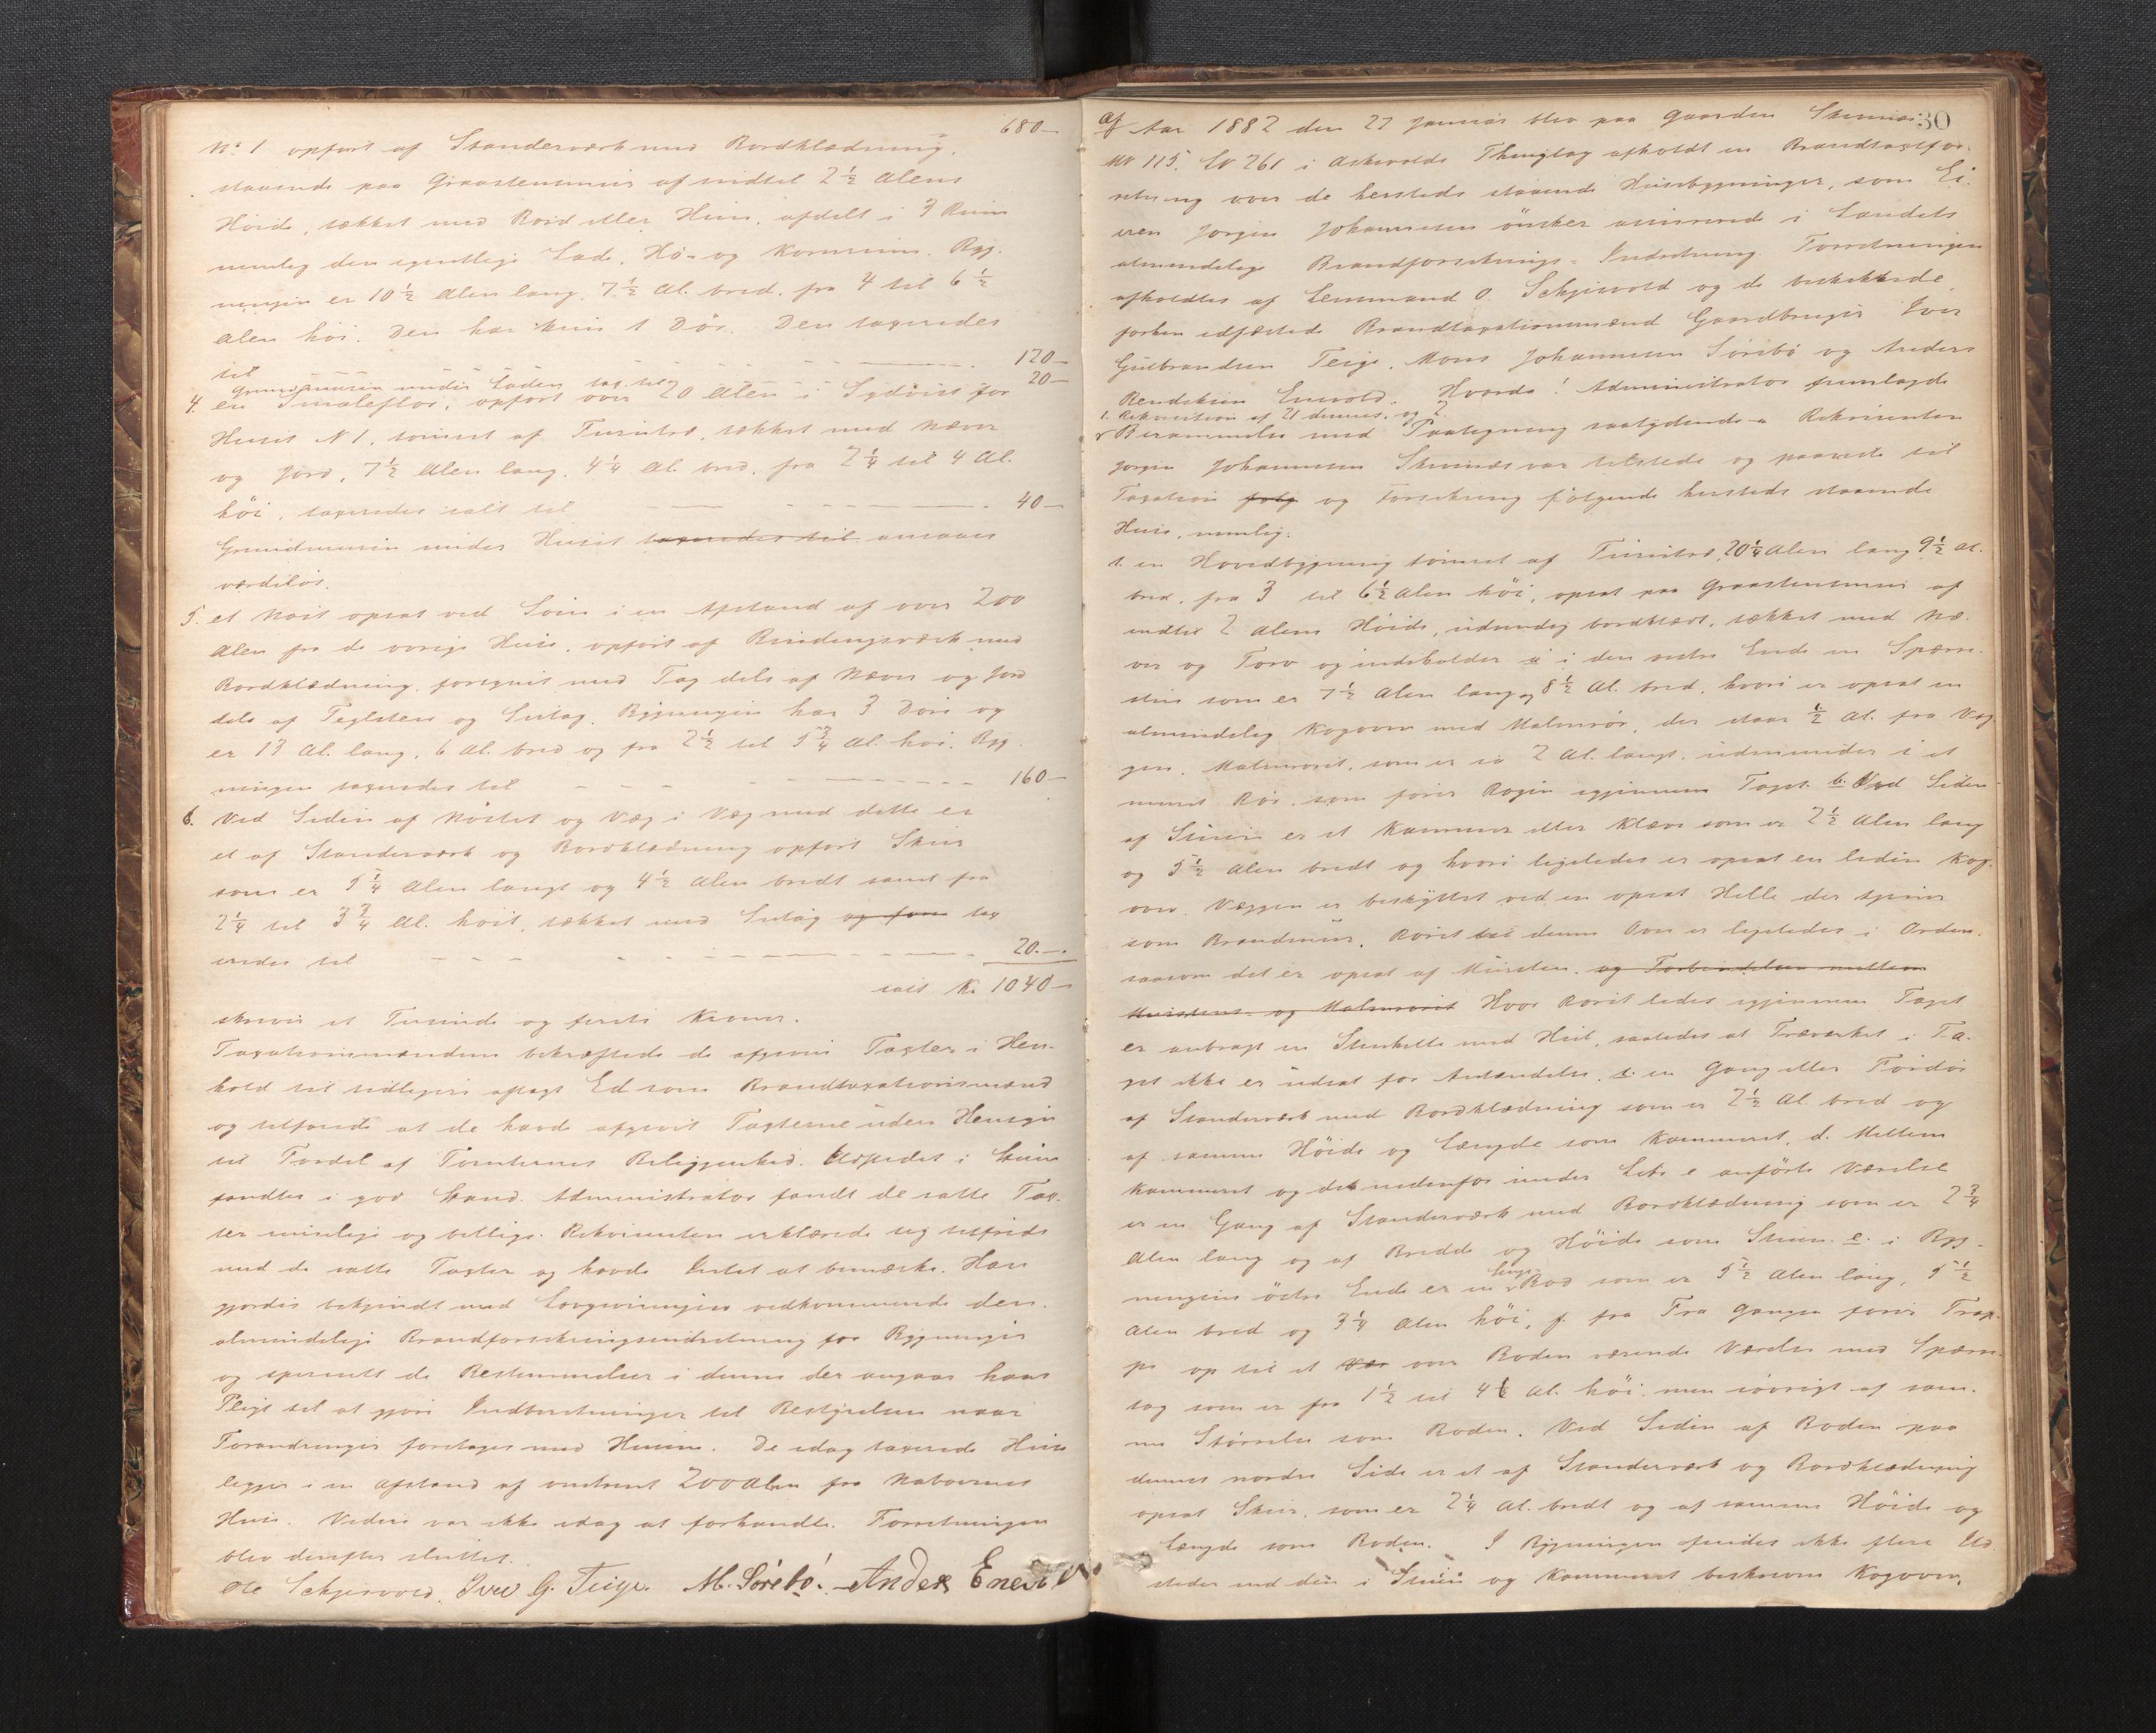 680-
No 1 opført af Standerværk med Bordklædning,
staaende paa Graastensmur af indtil 2 1/2 Alens
Høide, tækket med Bord eller Him, afdelt i 3 Rum
nemlig den egentlige Lade, Hø- og Kornrum. Byg-
ningen er 10 1/2 Alen lang, 7 1/2 Al. bred, fra 4 til 6 1/2
Alen høi. Den har kun 1 Dör. Den taxeredes
til - - - 120-
Grundmuren under Laden tax. til 20-
4. en Smaleflor, opført over 20 Alen i Sydvest for
Huset N 1, tømret af Furutræ, tækket med Næver
og Jord, 7 1/2 Alen lang, 4 1/4 Al. bred, fra 2 1/4 til 4 Al.
höi, taxeredes ialt til - - - 40-
Grundmuren under Huset taxeredes til ansaaes
værdiløs.
5. et Nøst opsat ved Søen i en Afstand af over 200
Alen fra de øvrige Huse, opført af Bindingsværk med
Bordklædning, forsynet med Tag dels af Næver og Jord
dels af Teglsten og Sutag. Bygningen har 3 Döre og
er 13 Al. lang, 6 Al. bred og fra 2 1/2 til 5 3/4 Al. høi. Byg-
ningen taxeredes til - - - 160-
6. Ved Siden af Nöstet og Væg i Væg med dette er
et af Standerværk og Bordklædning opført Skur
som er 5 1/4 Alen langt og 4 1/2 Alen bredt samt fra
2 1/4 til 3 3/4 Al. høit, tækket med Sutag og for tax
eredes til - - - 20.-
ialt Kr. 1040-
skriver et Tusinde og førti Kroner.
Taxationsmændene bekræftede de afgivne Taxter i Hen-
hold til tidligere aflagt Ed som Brandtaxationsmænd
og tilføiede at de havde afgivet Taxterne uden Hensyn
til Fordel af Tomternes Beliggenhed. Ildstedet i Stuen
fandtes i god Stand. Administrator fandt de satte Tax-
ter rimelige og billige. Rekvirenten erklærede sig tilfreds
med de satte Taxter og havde Intet at bemærke. Han
gjordes bekjendt med Lovgivningen vedkommende den
almindelige Brandforsikringsindretning for Bygninger
og specielt de Bestemmelser i denne der angaar hans
Pligt til at gjøre Indberetninger til Bestyrelsen naar
Forandringer foretages med Husene. De idag taxerede Huse
ligger i en Afstand af omtrent 200 Alen fra Naboernes
Huse. Videre var ikke idag at forhandle. Forretningen
blev derefter sluttet.
Ole Schjervold. Iver G. Teige. M. Sörebö. Anders Enevold
30
Aar 1882 den 27 Januar blev paa Gaarden
MN 115, LN 261 i Askevolds Thinglag afholdt en Brandtaxtfor-
retning over de hersteds staaende Husebygninger, som Ei-
eren Jørgen Johannesen önsker assurerede i Landets
almindelige Brandforsikrings-Indretning. Forretningen
afholdtes af Lensmand O. Schjervold og de beskikkede,
forhen edfæstede Brandtaxationsmænd Gaardbruger Iver
Gulbrandsen Teige, Mons Johannesen Sörebö og Anders
Bendiksen Enevold. Hvorda! Administrator fremlagde
1. Rekvisition af 21 dennes, og 2.
Berammelse med Paategning saalydende - Rekvirenten
Jørgen Johannesen var tilstede og paaviste til
Taxation følg og Forsikring følgende hersteds staaende
Huse, nemlig:
1. en Hovedbygning tømret af Furutræ, 20 1/4 Alen lang 9 1/2 Al.
bred, fra 3 til 6 1/2 Alen höi, opsat paa Graastensmur af
indtil 2 Alens Høide, udvendig bordklædt, tækket med Næ-
ver og Torv og indeholder a i den vestre Ende en Sperre-
stue som er 7 1/2 Alen lang og 8 1/2 Al. bred, hvori er opsat en
almindelig Kogovn med Malmrör, der staar 1/2 Al. fra Væg-
gen. Malmrøret, som er ca 2 Al. langt, udmunder i et
muret Rör, som fører Røgen igjennem Taget. b. Ved Siden
af Stuen er et Kammer eller Kleve som er 2 1/2 Alen lang
og 5 1/2 Alen bredt og hvori ligeledes er opsat en liden Kog-
ovn. Væggen er beskyttet ved en opsat Helle der tjener
som Brandmur. Røret til denne Ovn er ligeledes i Orden,
saasom det er opsat af Mursten. og Forbindelsen mellem
Murstens- og Malmrøret Hvor Røret ledes igjennem Taget
er anbragt en Stenhelle med Hul, saaledes at Træværket i Ta-
get ikke er udsat for Antændelse. c. en Gang eller Fordör
af Standerværk med Bordklædning som er 2 1/2 Al. bred og
af samme Höide og Længde som Kammeret. d. Mellem
Kammeret og det nedenfor under Litr e anførte Værelse
er en Gang af Standerværk med Bordklædning som er 2 3/4
Alen lang og af Bredde og Höide som Stuen. e. i Byg-
ningens östre Ende er en Bod som er 5 1/2 Alen lang, 5 1/2
Alen bred og 3 1/4 Alen höi, f. fra Fra Gangen fører Trap-
pe op til et Vær over Boden værende Værelse med Sperre-
tag som er fra 1 1/2 til 4 Al. höi, men iøvrigt af sam-
me Størrelse som Boden. Ved Siden af Boden paa
dennes nordre Side er et af Standerværk og Bordklædning
opsat Skur, som er 2 1/4 Al. bredt og af samme Höide og
Længde som Boden. I Bygningen findes ikke flere Ild-
steder end den i Stuen og Kammeret beskrevne Kogovn,